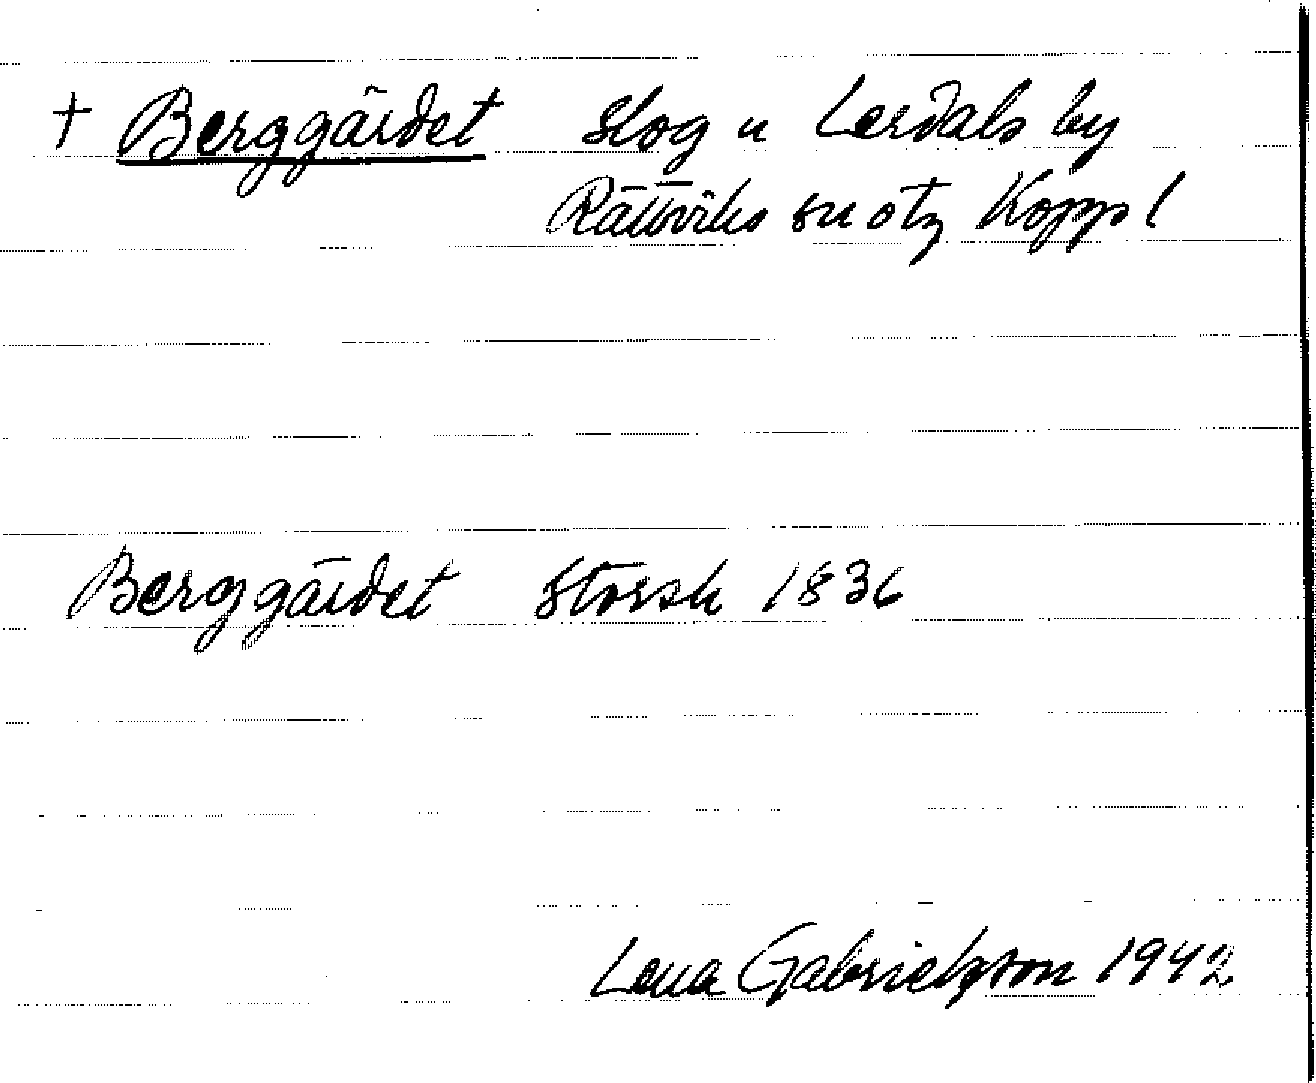 † Berggärdet slog u Lerdals by
Rättviks sn o tg Kopp l
Berggärdet Storsk 1836
Lena Gabrielsson 1942